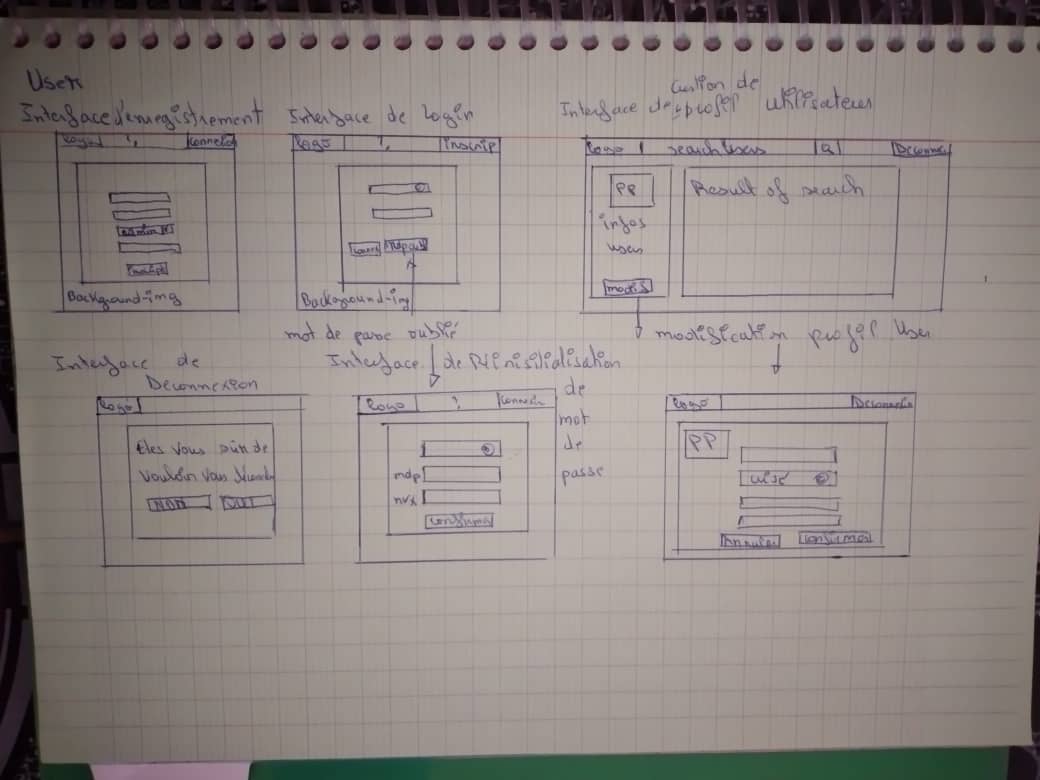 User
Interface d'enregistrement
Logo ?
Background-img
Interface de login
Logo ? Inscrip
Background-img
mot de passe oublié
Gestion de
Interface de profil utilisateur
Logo search Users Q Deconnex
PP
infos
user
modif
Result of search
modification profil User
Interface de
Deconnexion
Logo
NON OUI
Interface de Réinisitialisation
de
mot
de
passe
Logo ? Connexi
mdp
nvx
confirmer
Logo Deconnexio
PP
Annuler confirmer